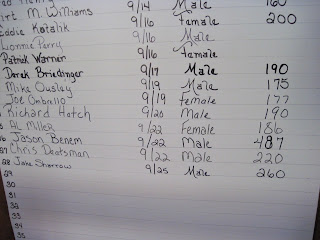 9/14 Male 160
irt M. Williams 9/16 Female 200
Eddie Kotalik 9/16 Male
Lonnie Perry 9/16 Female
Patrick Warner
Derek Briedinger 9/17 Male 190
Mike Ousley 9/19 Male 175
Joe 9/19 female 177
Richard Hatch 9/20 Male 190
AL Miller 9/22 Female 186
Jason Benem 9/22 Male 487
27 Chris Deatsman 9/22 Male 220
28 Jake Sharrow 9/25 Male 260
29
30
31
32
33
34
35